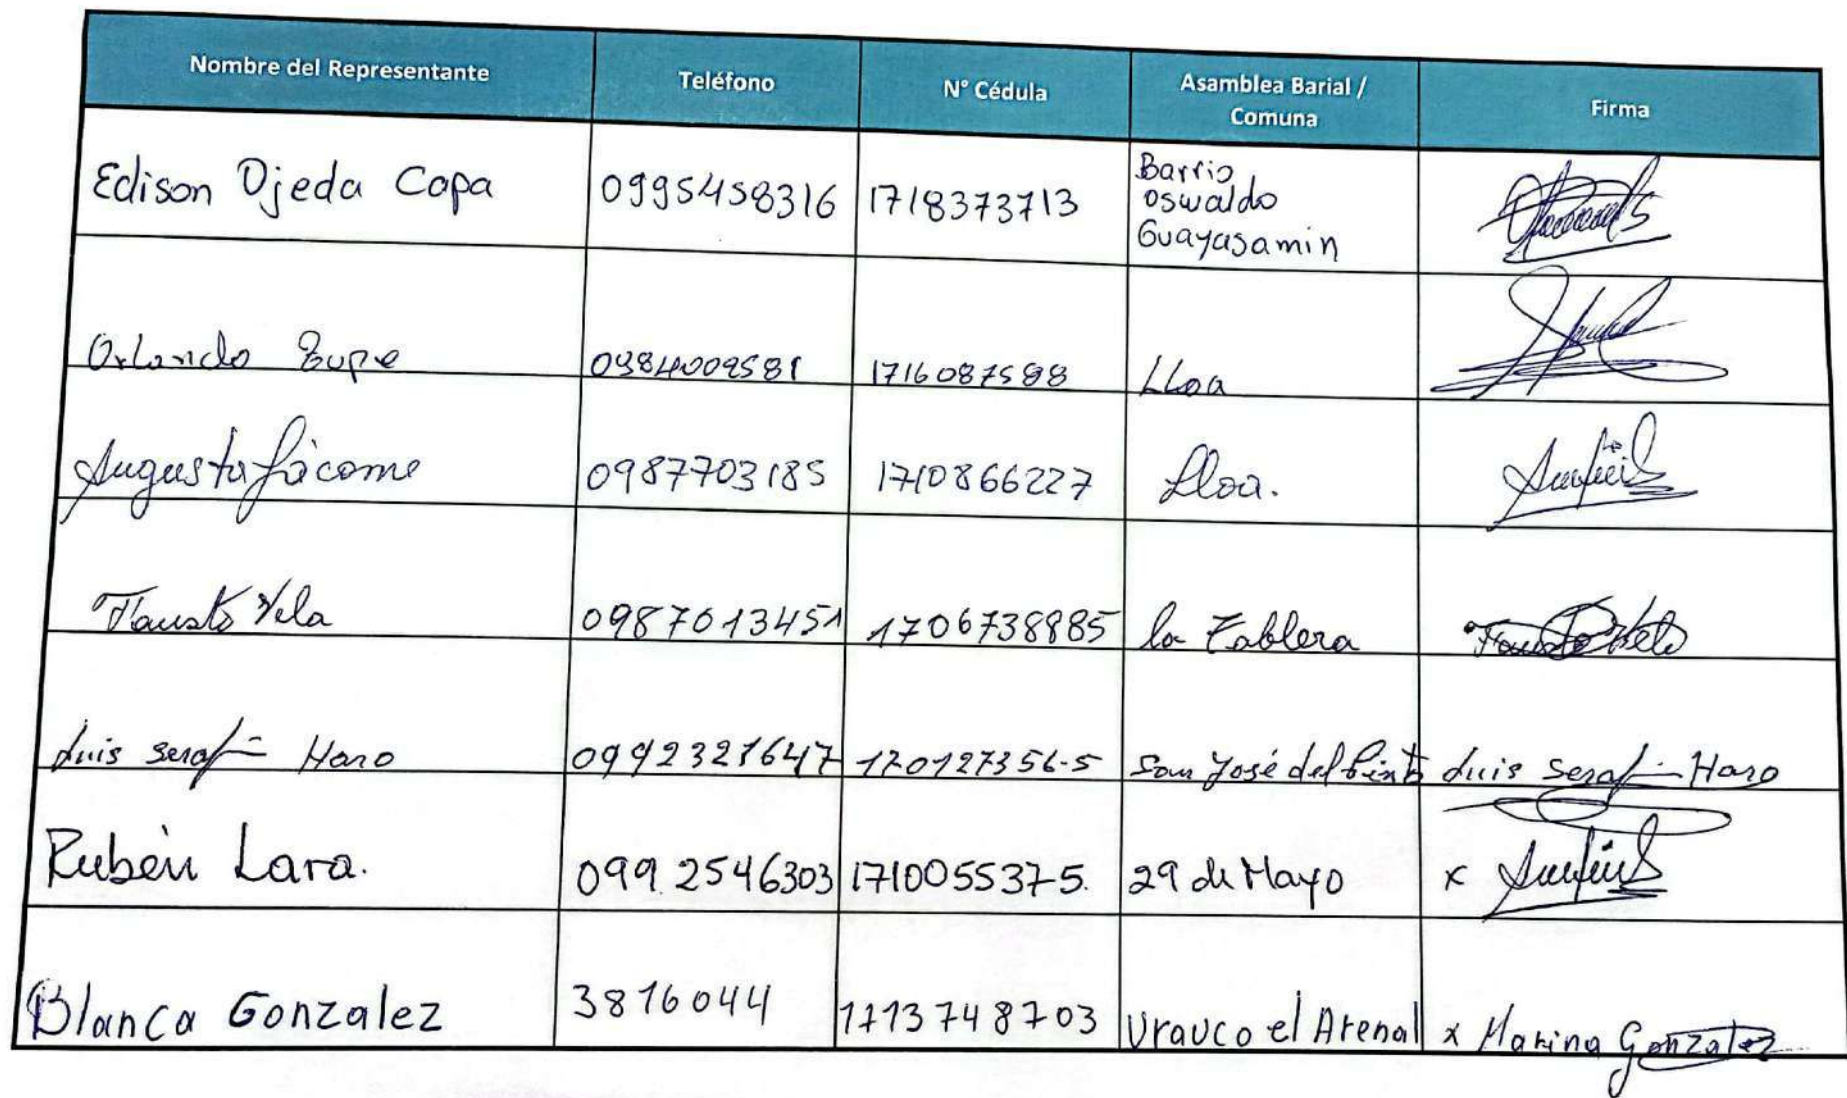 Nombre del Representante Teléfono N° Cédula Asamblea Barial / Comuna Firma
Edison Ojeda Capa 0995458316 1718373713 Barrio
oswaldo
Guayasamin
Orlando 0984009581 1716087598 Lloa
Augusta Jácome 0987703185 1710866227 Lloa.
Fausto Vela 0987013451 1706738885 la Tablera Fausto Vela
Luis Serafin Haro 0992321647 170127356-5 San José del Cinto Luis Serafin Haro
Rubén Lara. 099 2546303 171005537-5. 29 de Mayo x
Blanca Gonzalez 3816044 1713748703 Urauco el Arenal x Marina Gonzalez